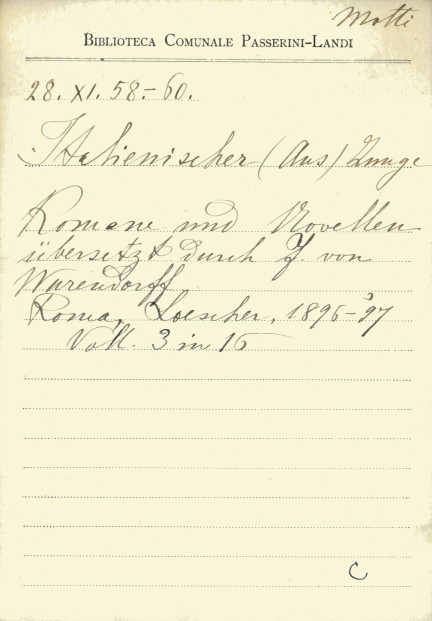 Motti
BIBLIOTECA COMUNALE PASSERINI-LANDI
28. XI. 58.-60.
Italienischer (Aus) Zunge
Romane und Novellen
übersetzt durch J. von
Warendorff
Roma, Loescher, 1896-'97
Voll. 3 in 16
C